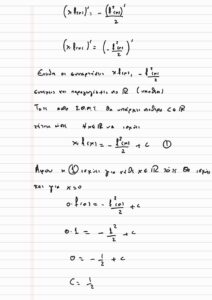 (x f(x))' = - (f²(x))' / 2
(x f(x))' = (- f²(x) / 2)'
Επειδή οι συναρτήσεις x f(x), - f²(x) / 2
συνεχείς και παραγωγίσιμες στο ℝ
Τότε από Σ.Θ.Μ.Τ. θα υπάρχει σταθερά c ∈ ℝ
τέτοια ώστε ∀x∈ℝ να ισχύει
x·f(x) = - f²(x) / 2 + c ①
Αφού η ① ισχύει για κάθε x∈ℝ τότε θα ισχύει
και για x=0
0·f(0) = - f²(0) / 2 + c
0·1 = - 1² / 2 + c
0 = - 1/2 + c
C = 1/2